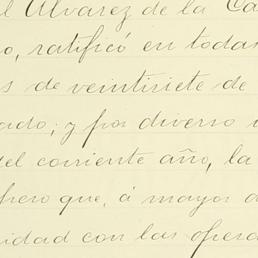 l Alvarez de la Ca
o, ratificó en todas
s de veintisiete de
ado; y por diverso
del corriente año, la
pero que, á mayor a
idad con las opera